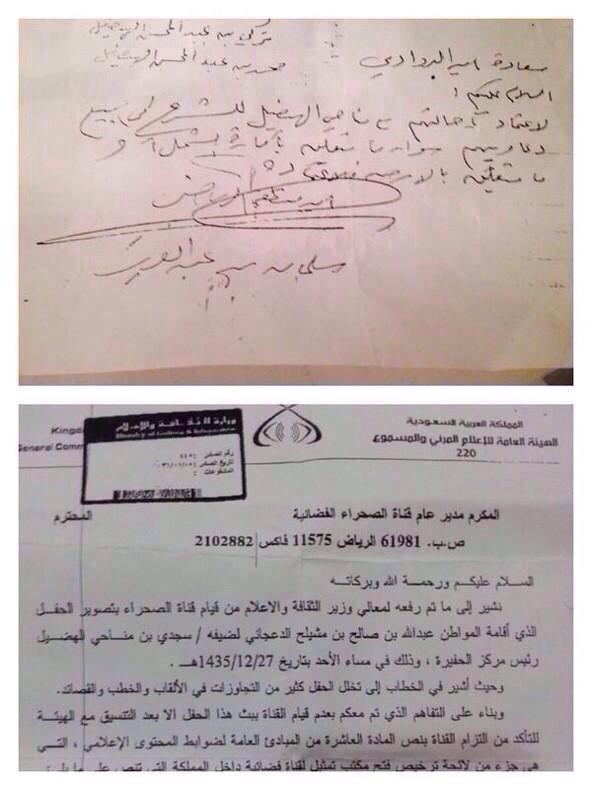 تركي بن عبد المحسن الهضيل
محمد بن عبد المحسن الهضيل
سعادة امير الدوادمي
السلام عليكم
لاعتماد احالتهم مناحي الهضيل للشرع جميع
دعاويهم سواء ما متعلقة بأمارة
ما متعلقة
امير منطقة الرياض
سلمان بن عبد العزيز
المملكة العربية السعودية
الهيئة العامة للإعلام المرئي والمسموع
220
Kingd
General Comm
وزارة الثقافة والإعلام
Ministry of Culture & Information
رقم الصادر :
تاريخ الصادر :
المشفوعات :
المكرم مدير عام قناة الصحراء الفضائية المحترم
ص.ب. 61981 الرياض 11575 فاكس 2102882
السلام عليكم ورحمة الله وبركاته
نشير إلى ما تم رفعه لمعالي وزير الثقافة والاعلام من قيام قناة الصحراء بتصوير الحفل
الذي أقامة المواطن عبدالله بن صالح بن مشيلح الدعجاني لضيفه / سجدي بن مناحي الهضيل
رئيس مركز الحفيرة ، وذلك في مساء الأحد بتاريخ 1435/12/27هـ .
وحيث أشير في الخطاب إلى تخلل الحفل كثير من التجاوزات في الألقاب والخطب والقصائد.
وبناء على التفاهم الذي تم معكم بعدم قيام القناة ببث هذا الحفل الا بعد التنسيق مع الهيئة
للتأكد من التزام القناة بنص المادة العاشرة من المبادئ العامة لضوابط المحتوى الإعلامي ، التي
هي جزء من لائحة ترخيص فتح مكتب تمثيل لقناة فضائية داخل المملكة التي تنص على ما يلي: